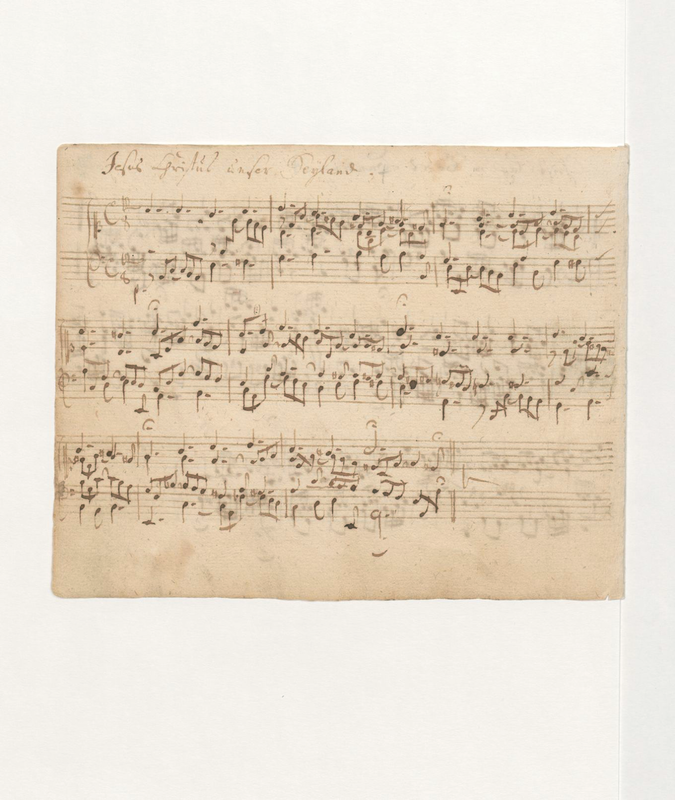 Jesus Christus unser Heyland.